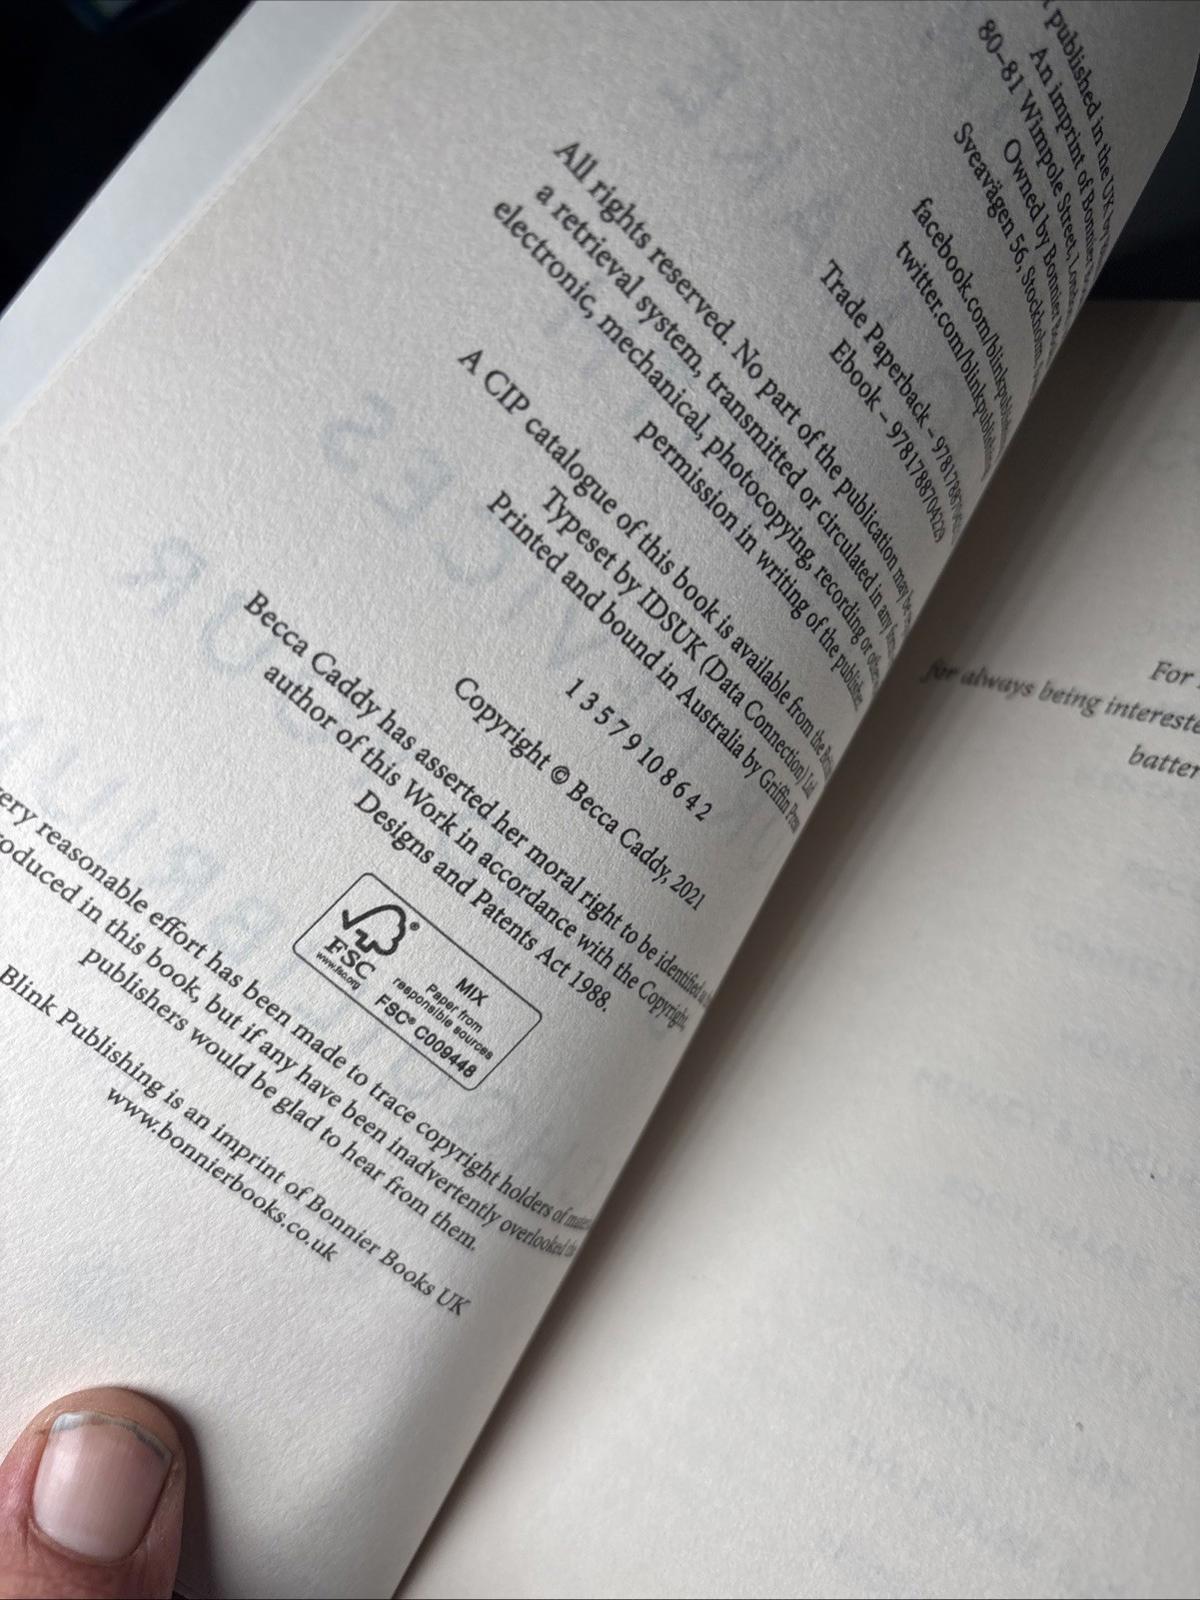 published in the UK by
An imprint of Bonnier
80–81 Wimpole Street,
Owned by Bonnier
Sveavägen 56, Stockholm,
facebook.com/blinkpublishing
twitter.com/blinkpublishing
Trade Paperback –
Ebook – 9781788704229
All rights reserved. No part of the publication may be
a retrieval system, transmitted or circulated in any
electronic, mechanical, photocopying, recording or
permission in writing of the publisher.
A CIP catalogue of this book is available from the
Typeset by IDSUK (Data Connection) Ltd
Printed and bound in Australia by Griffin Press
1 3 5 7 9 10 8 6 4 2
Copyright © Becca Caddy, 2021
Becca Caddy has asserted her moral right to be identified
author of this Work in accordance with the Copyright,
Designs and Patents Act 1988.
FSC®
www.fsc.org
MIX
Paper from
responsible sources
FSC® C009448
very reasonable effort has been made to trace copyright holders of
roduced in this book, but if any have been inadvertently overlooked
publishers would be glad to hear from them.
Blink Publishing is an imprint of Bonnier Books UK
www.bonnierbooks.co.uk
For
for always being intereste
batter